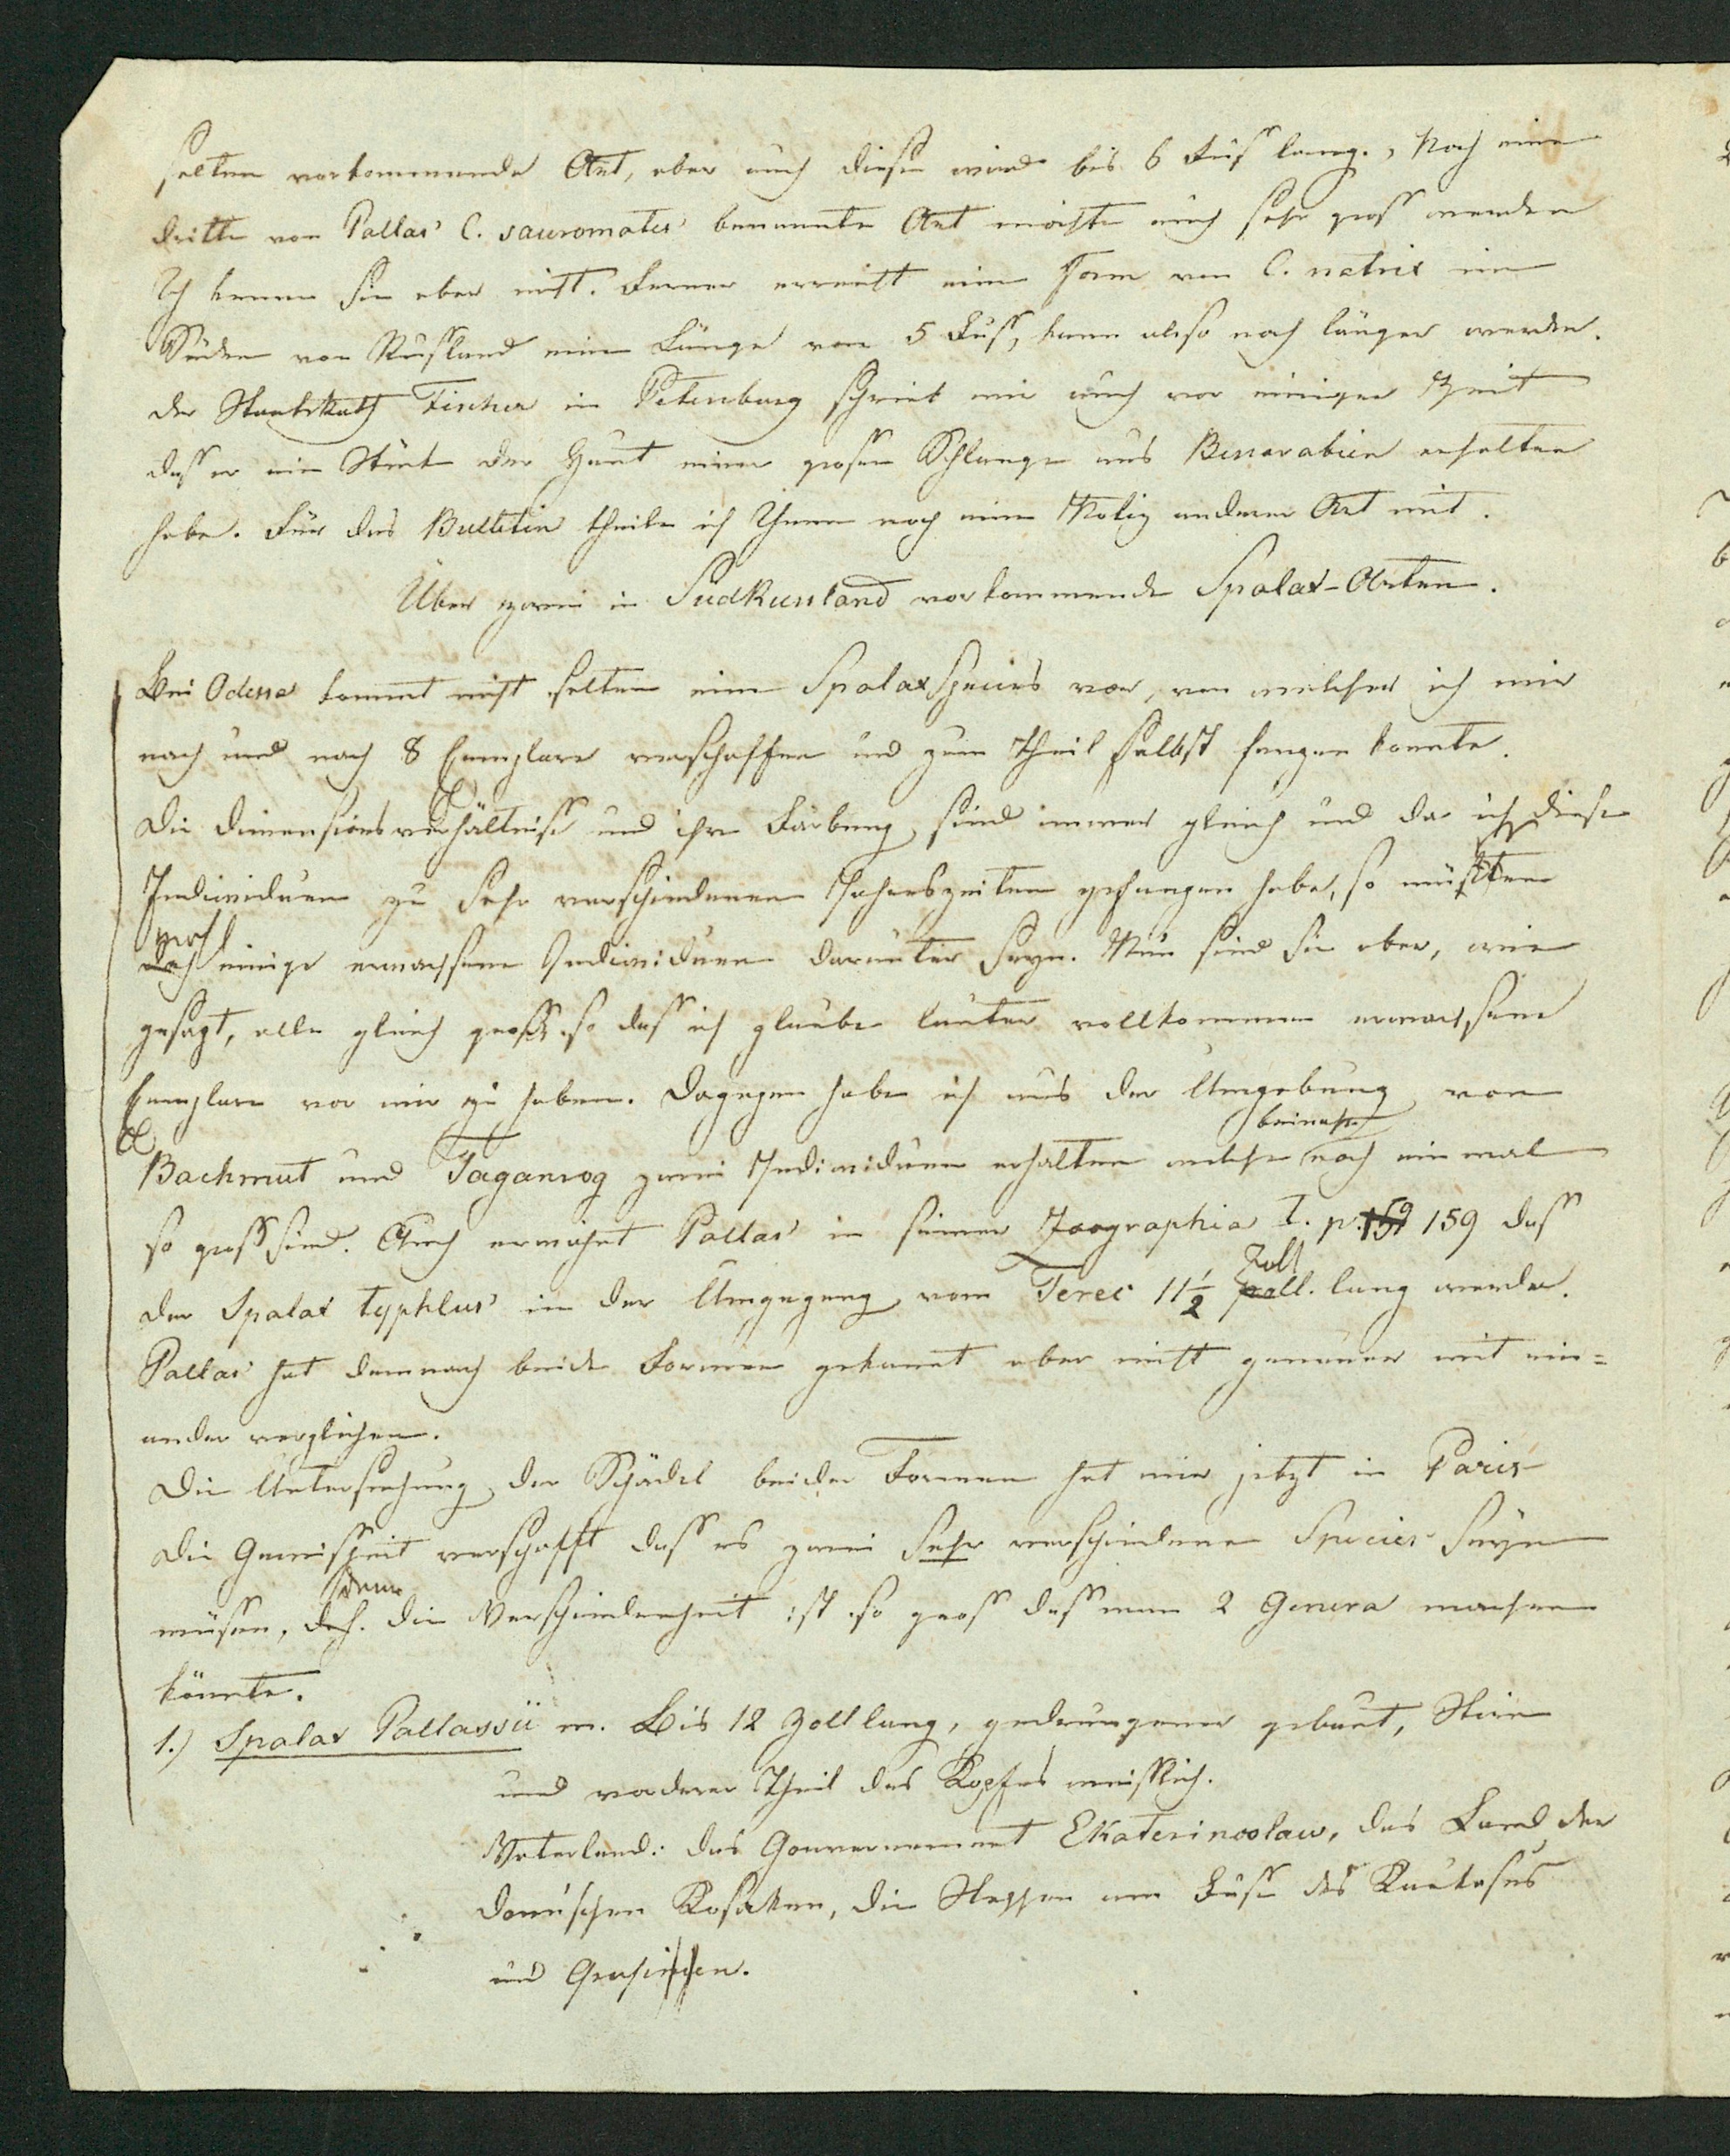 selten vorkommende Art, aber auch diese wird bis 6 Fuß lang., Noch eine
dritte von Pallas C. sauromates benannte Art möchte auch sehr groß werden
Ich kenne sie aber nicht. Ferner erreicht eine Form von C. natrix im
Süden von Rußland eine Länge von 5 Fuß, kann also noch länger werden.
Der StaatsRath Fischer in Petersburg schrieb mir auch vor einiger Zeit
daß er ein Stück der Haut einer großen Schlange aus Bessarabien erhalten
habe. Für das Bulletin theile ich Ihnen noch eine Notiz anderer Art mit.
Über zwei in SüdRussland vorkommende Spalax-Arten.
Bei Odessa kommt nicht selten eine Spalax Species vor, von welcher ich mir
nach und nach 8 Exemplare verschaffen und zum Theil selbst fangen konnte.
Die Dimensionsverhältniße und ihre Färbung sind immer gleich und da ich diese
Individuen zu sehr verschiedenen Jahreszeiten gefangen habe, so müßten
wohl
doch einige erwachsene Individuen darunter seyn. Nun sind sie aber, wie
gesagt, alle gleich groß so daß ich glaube lauter vollkommen erwachsene
Exemplare vor mir zu haben. Dagegen habe ich aus der Umgebung von
beinahe
Bachmut und Taganrog zwei Individuen erhalten welche noch ein mal
so groß sind. Auch erwähnt Pallas in seiner Zoographia I. p. 159 159 daß
Zoll
der Spalax typhlus in der Umgegung vom Terec 11 1/2 poll. lang werde.
Pallas hat demnach beide Formen gekannt aber nicht genauer mit ein=
ander verglichen.
Die Untersuchung der Schädel beider Formen hat mir jetzt in Paris
die Gewißheit verschafft daß es zwei sehr verschiedene Species seyn
denn
müßen, d.h. die Verschiedenheit ist so groß daß man 2 Genera machen
könnte.
1.) Spalax Pallasii m. Bis 12 Zoll lang, gedrungener gebaut, Stirn
und vorderer Theil des Kopfes weißlich.
Vaterland: das Gouvernement Ekaterinoslaw, das Land der
donischen Kosaken, die Steppen am Fuße des Kaukasus
und Grusinien.